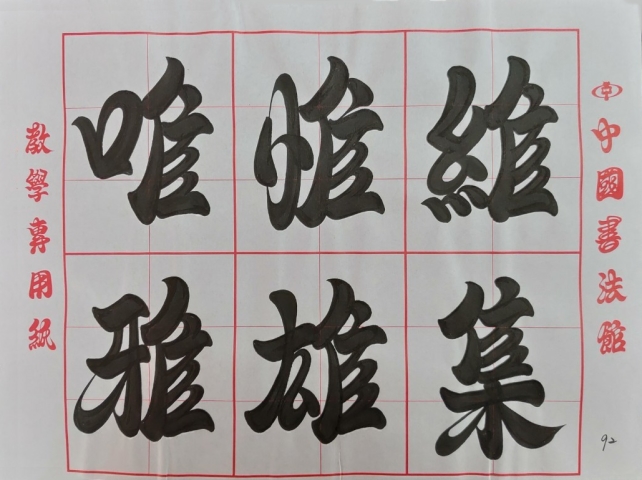 唯惟維
雅雄集
教學專用紙
中國書法館
92